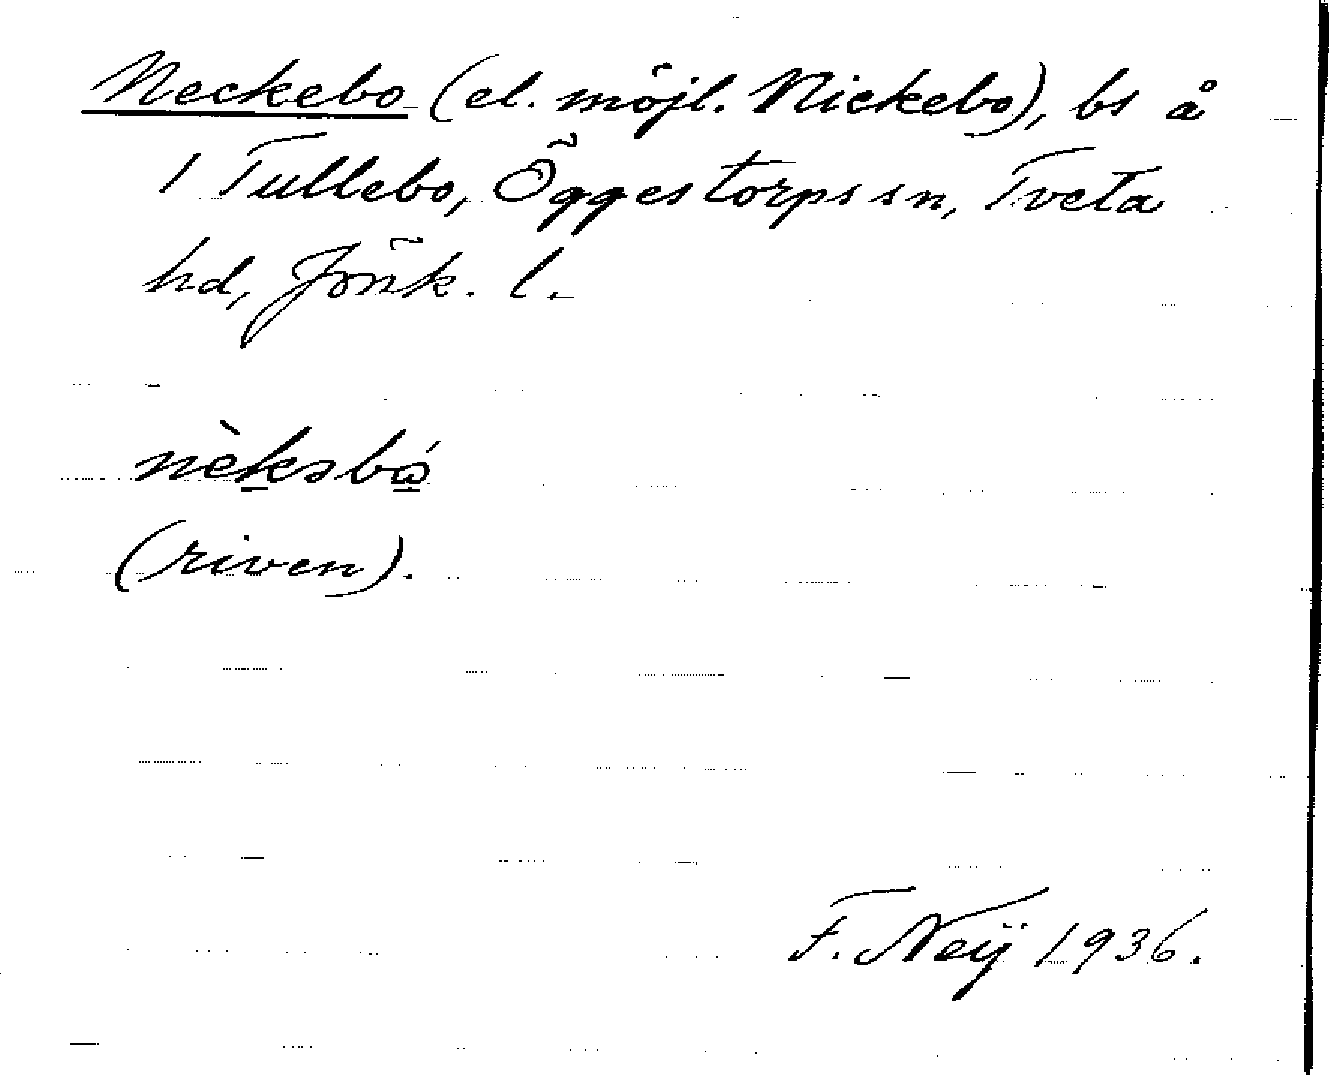 Neckebo (el. möjl. Nickebo), bs å
1 Tullebo, Öggestorps sn, Tveta
hd, Jönk. l.
nèkəbó̤
(riven).
F. Neij 1936.